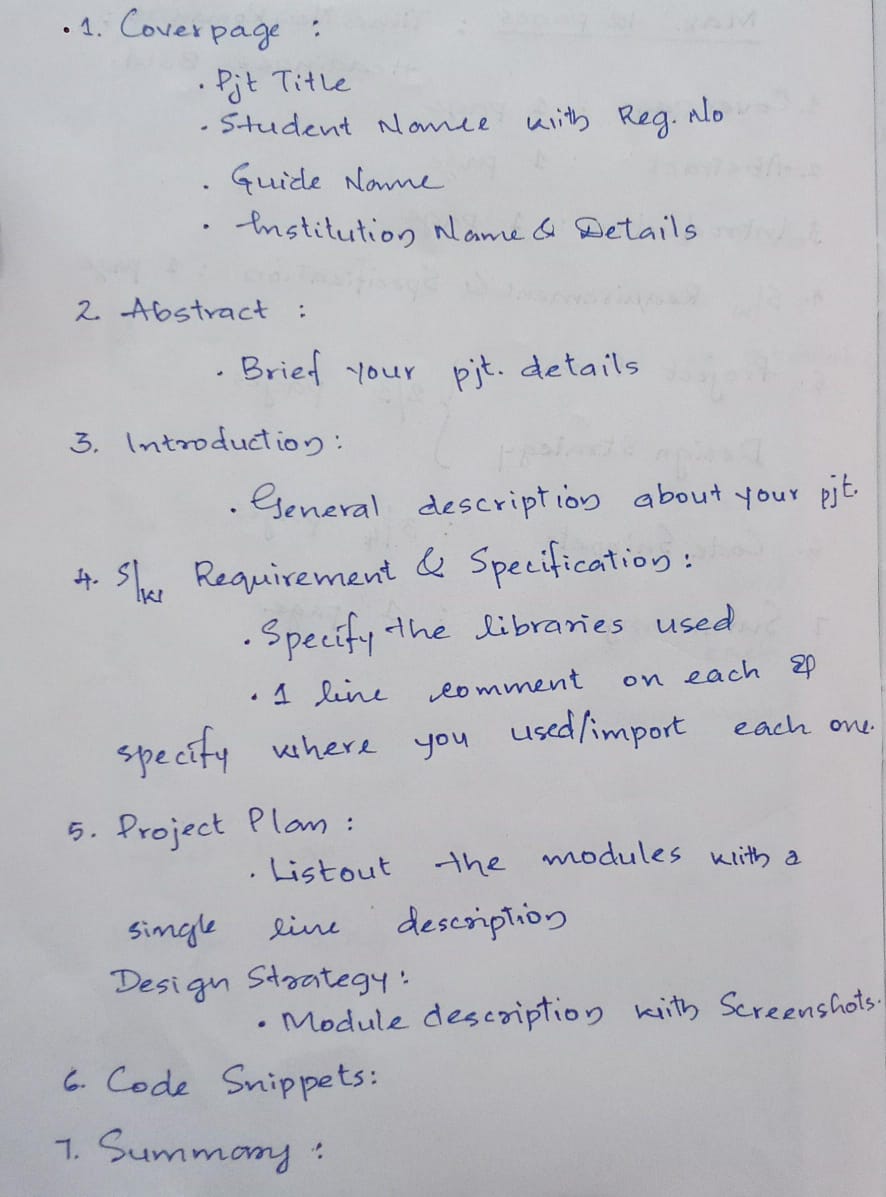 . 1. Coverpage :
. Pjt Title
. Student Name with Reg. No
. Guide Name
. Institution Name & Details
2. Abstract :
. Brief your pjt. details
3. Introduction :
. General description about your pjt.
4. S/w Requirement & Specification :
. Specify the libraries used
. 1 line comment on each &
specify where you used/import each one.
5. Project Plan :
. Listout the modules with a
single line description
Design Strategy :
. Module description with Screenshots.
6. Code Snippets :
7. Summary :